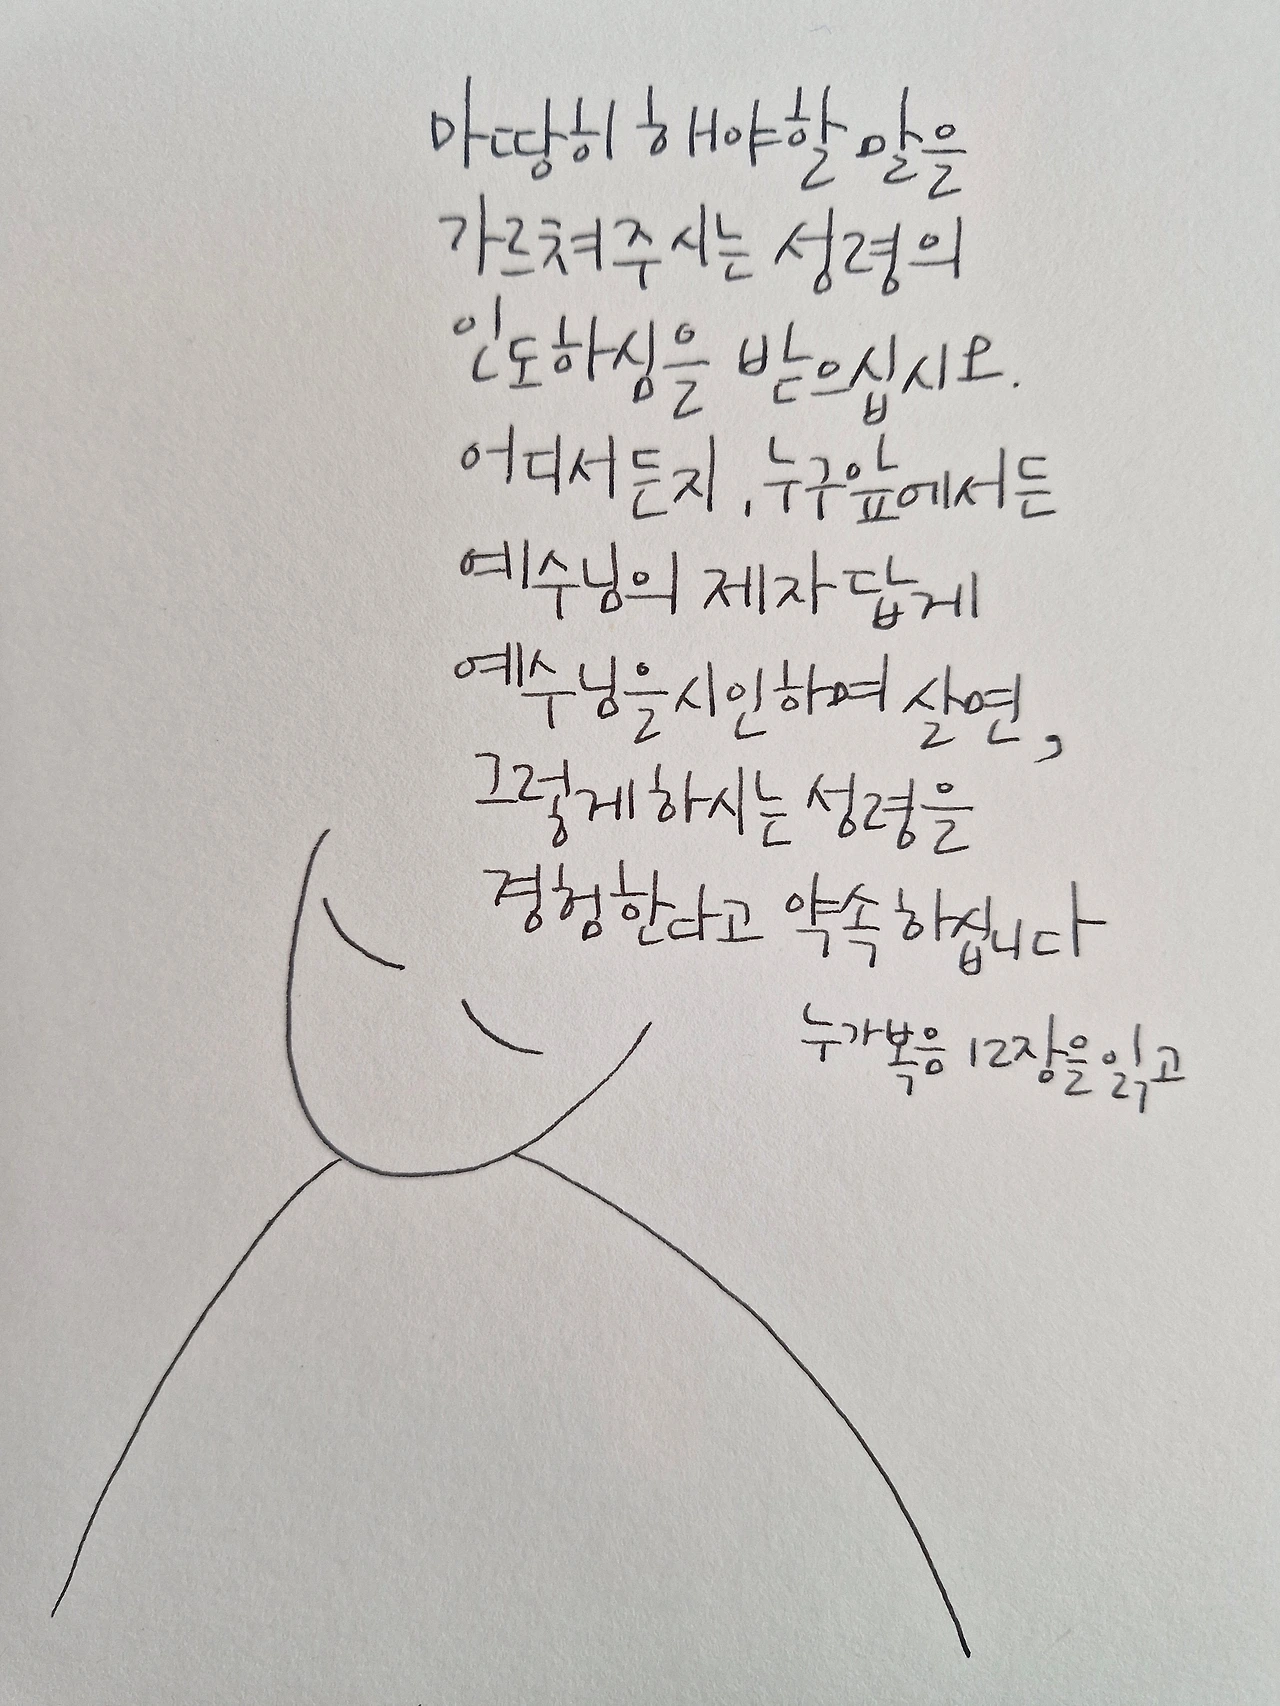 마땅히 해야할 말을
가르쳐주시는 성령의
인도하심을 받으십시오.
어디서든지, 누구앞에서든
예수님의 제자답게
예수님을 시인하며 살면,
그렇게하시는 성령을
경험한다고 약속하십니다
누가복음 12장을 읽고